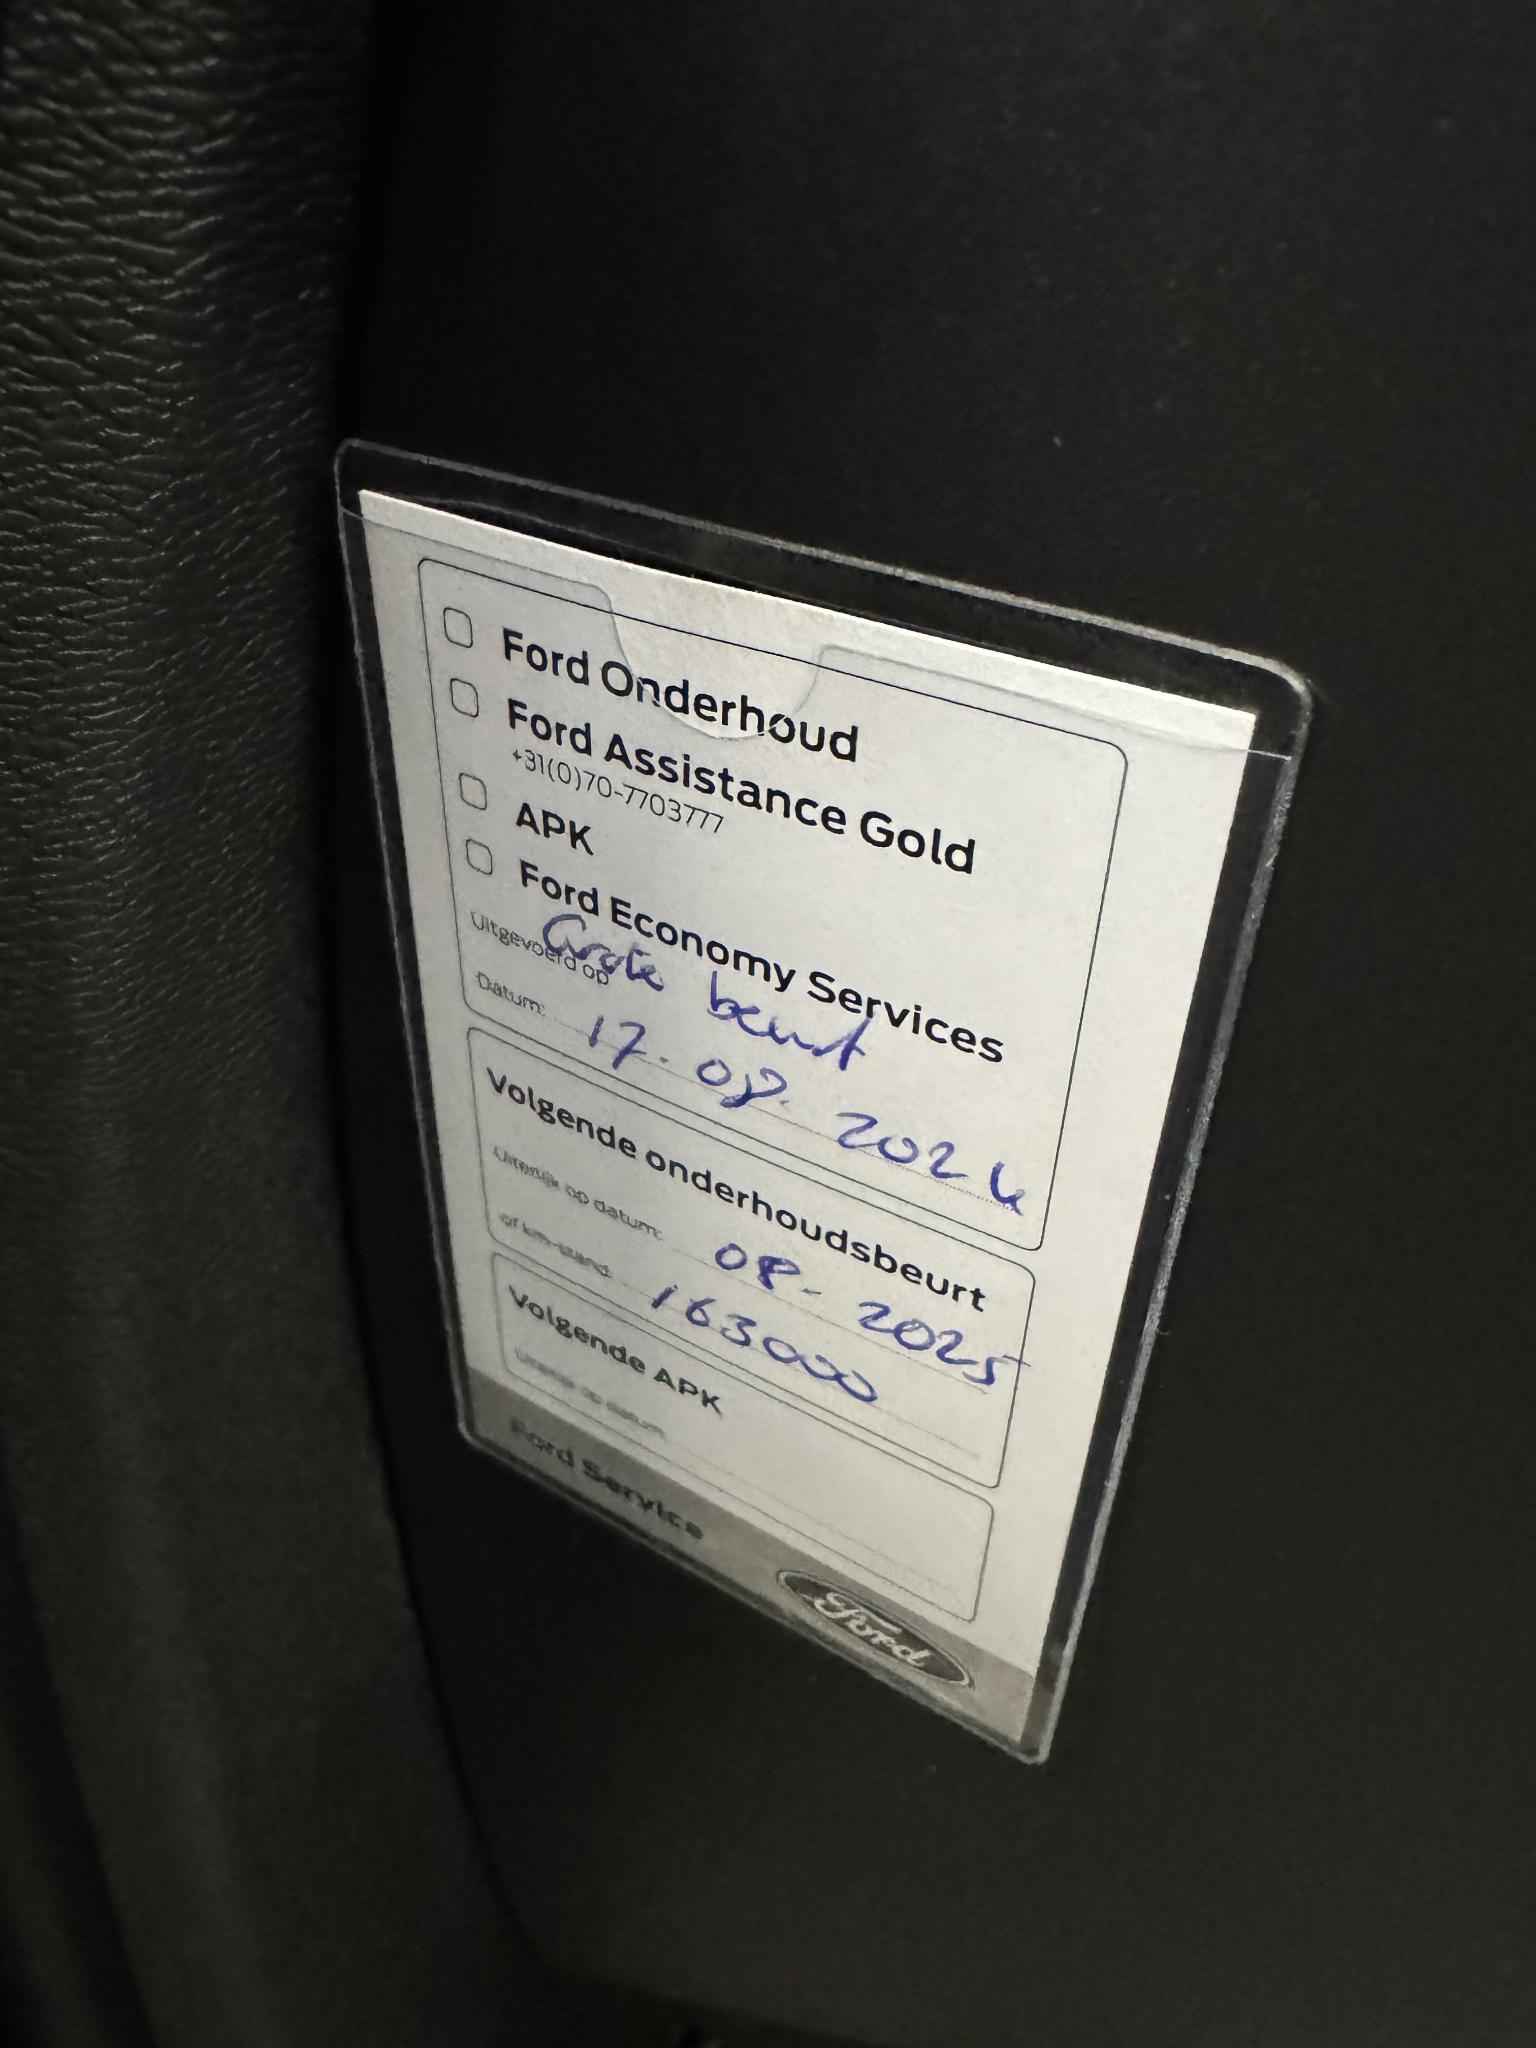 Ford Onderhoud
Ford Assistance Gold
+31(0)70-7703777
APK
Ford Economy Services
Grote beurt
Uitgevoerd op
Datum: 17.08.2024
Volgende onderhoudsbeurt
Uiterlijk op datum: 08-2025
of km-stand: 163000
Volgende APK
Uiterlijk op datum:
Ford Service
Ford